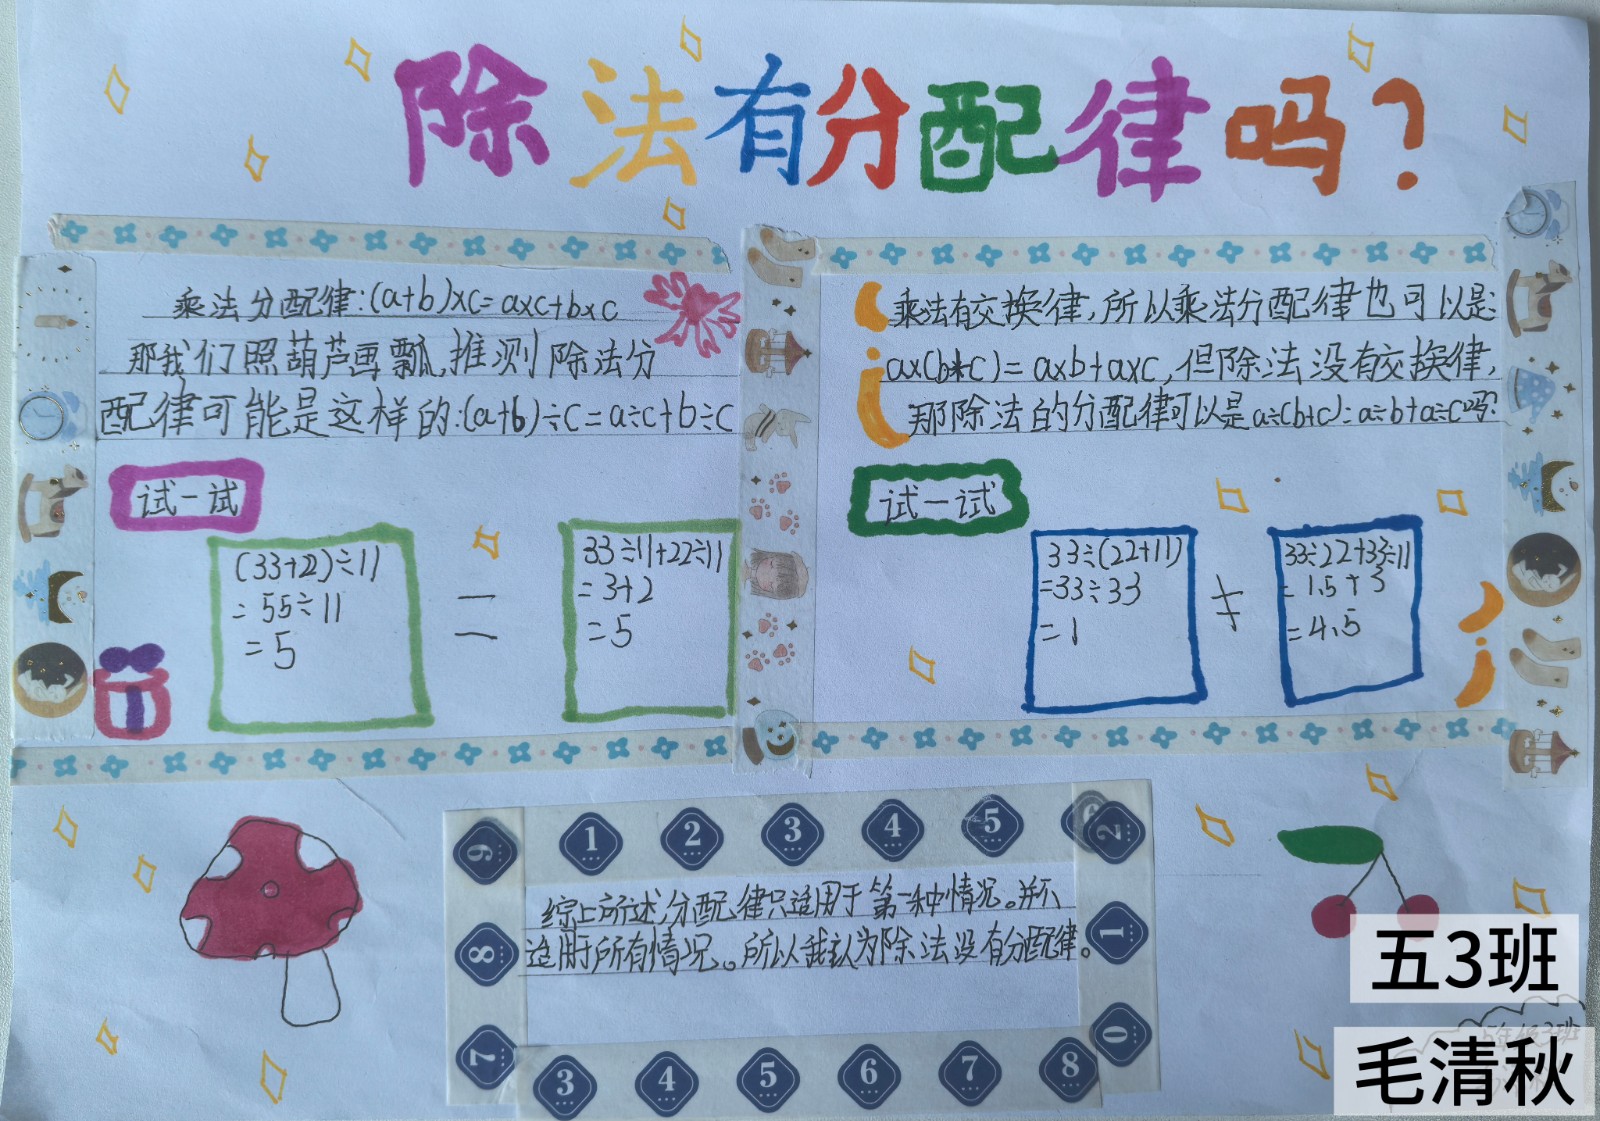 除法有分配律吗？
乘法分配律:(a+b)×c=a×c+b×c
那我们照葫芦画瓢,推测除法分
配律可能是这样的:(a+b)÷c=a÷c+b÷c
试一试
(33+22)÷11
=55÷11
=5
=
33÷11+22÷11
=3+2
=5
乘法有交换律,所以乘法分配律也可以是:
a×(b+c)=a×b+a×c,但除法没有交换律,
那除法的分配律可以是a÷(b+c)=a÷b+a÷c吗?
试一试
33÷(22+11)
=33÷33
=1
≠
33÷22+33÷11
=1.5+3
=4.5
9 1 2 3 4 5 6 2
综上所述,分配律只适用于第一种情况。并不
适用于所有情况。所以我认为除法没有分配律。
8 1
7 0
3 4 5 6 7 8
五3班
毛清秋